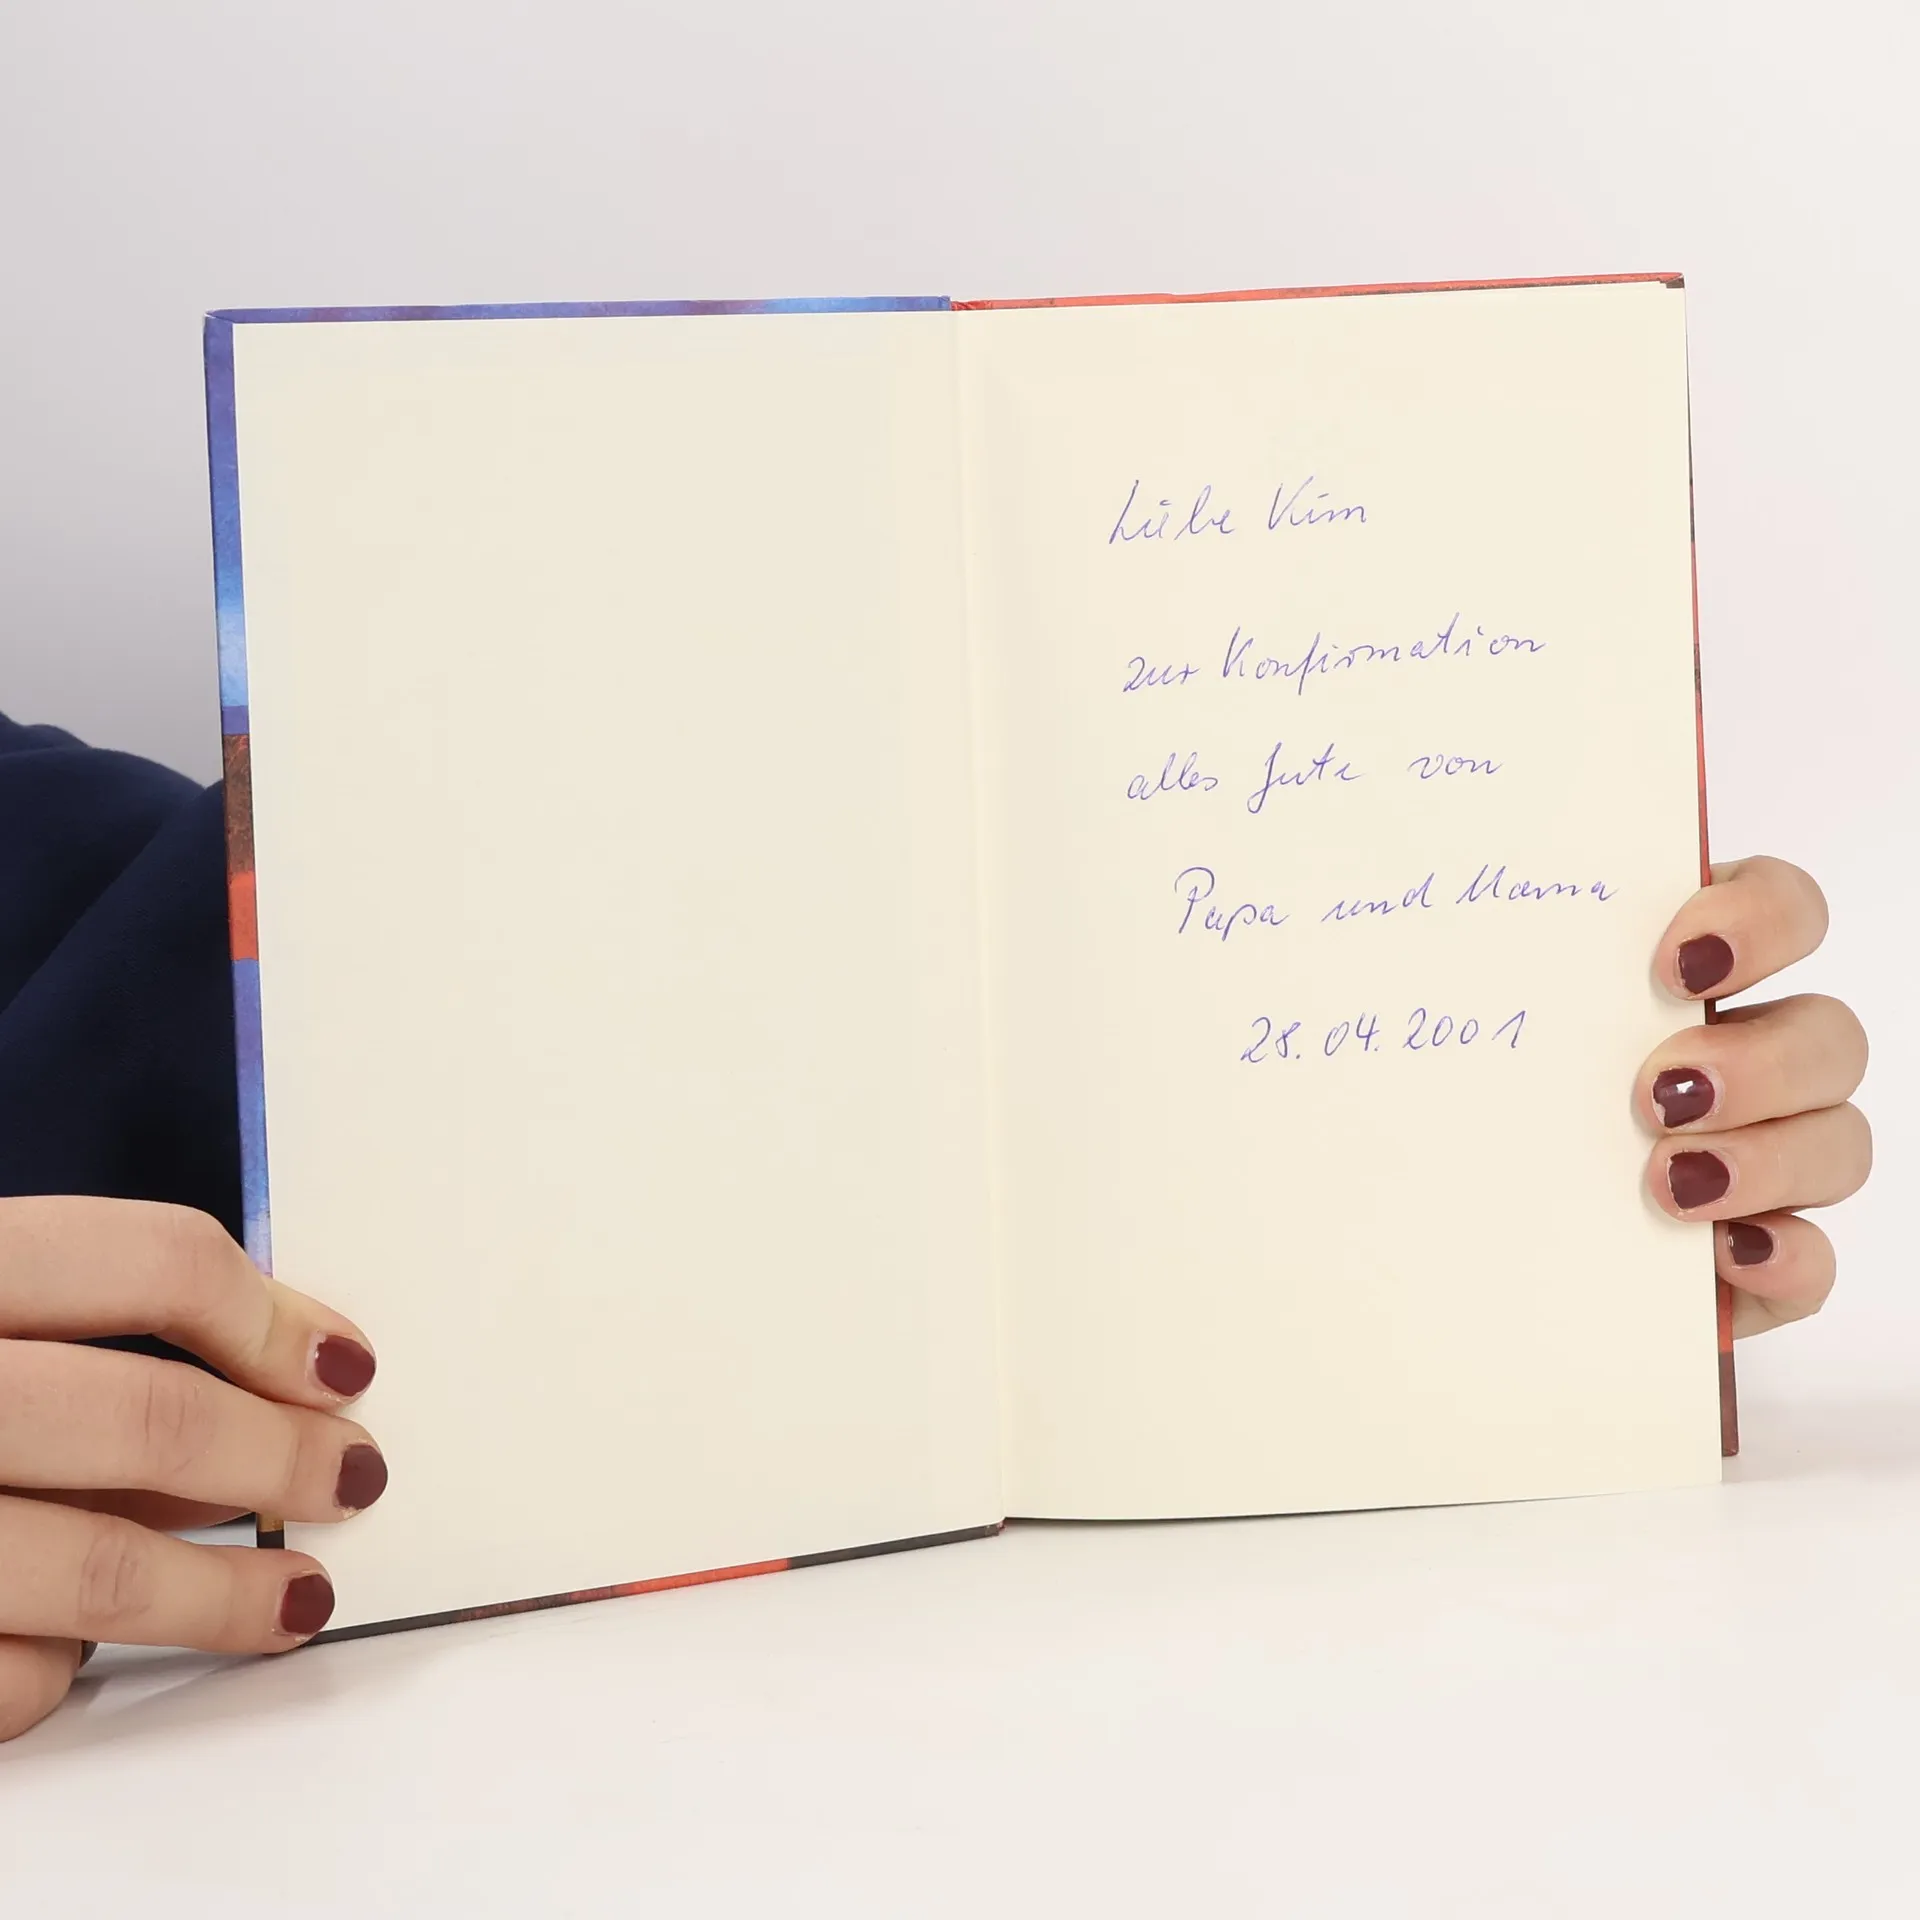 Liebe Kim
zur Konfirmation
alles Gute von
Papa und Mama
28.04.2001